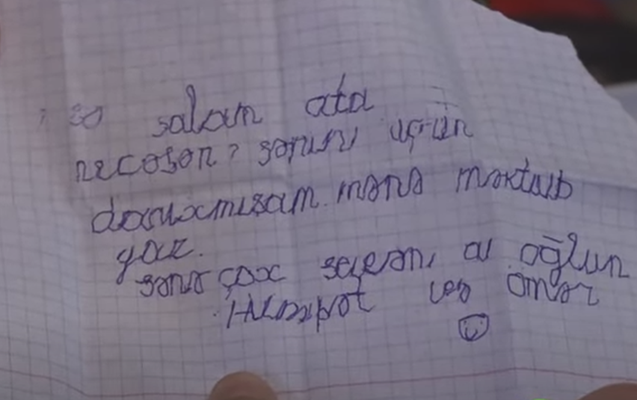 salam ata
necəsən? sənin üçün
darıxmışam. mənə məktub
yaz.
sənə çox sevən, oğlun
və Ömər